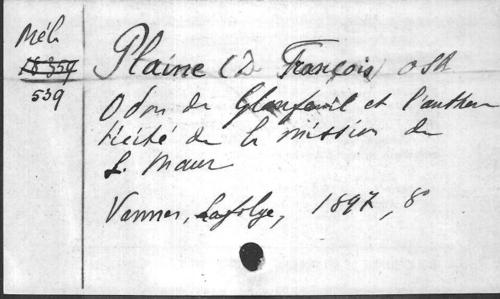 Mél.
18359
539
Plaine (D François) OSB
Odon de Glanfeuil et l'authen
ticité de la mission de
S. Maur
Vannes, Lafolye, 1897, 8°